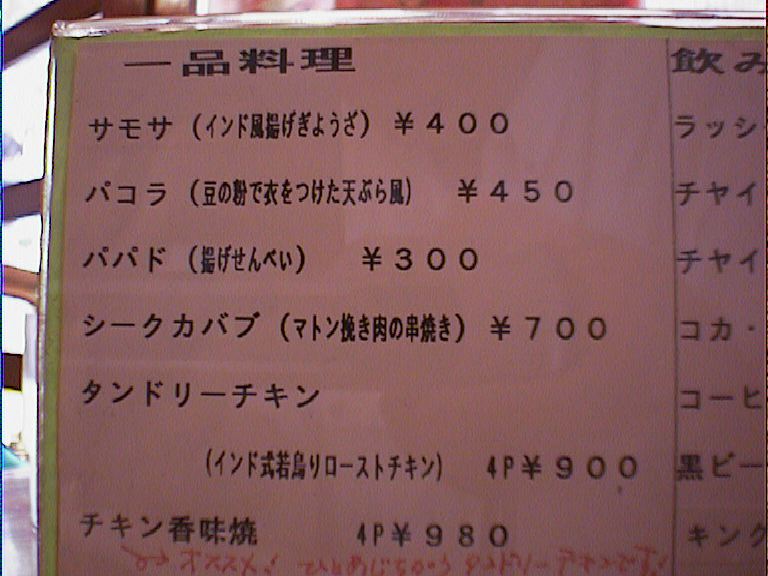 一品料理
サモサ (インド風揚げぎょうざ) ￥４００
パコラ (豆の粉で衣をつけた天ぷら風) ￥４５０
パパド (揚げせんべい) ￥３００
シークカバブ (マトン挽き肉の串焼き) ￥７００
タンドリーチキン
(インド式若鳥りローストチキン) 4P￥９００
チキン香味焼 4P￥９８０
オススメ! ひとあじちがう タンドリーチキンです!
飲み
ラッシ
チャイ
チャイ
コカ・
コーヒ
黒ビー
キング